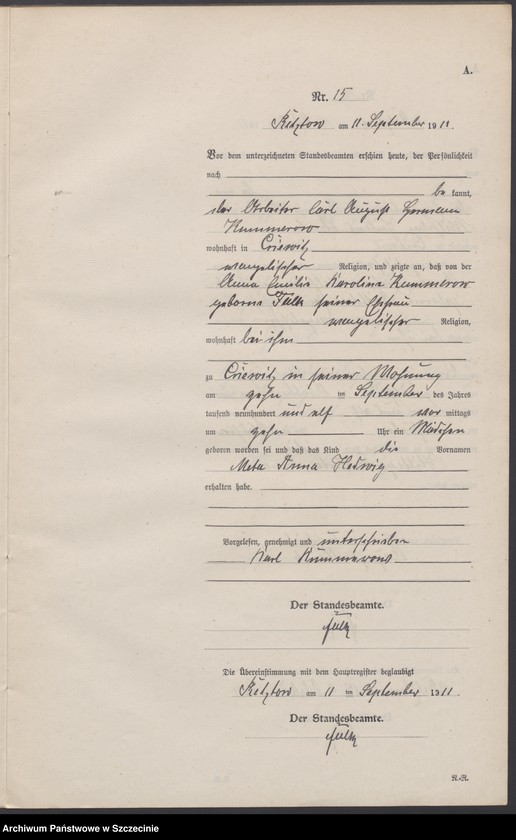 A.
Nr. 15
am 11. September 1911
Vor dem unterzeichneten Standesbeamten erschien heute, der Persönlichkeit
nach
bekannt,
der Arbeiter Carl August Hermann
Kummerow
wohnhaft in Criewitz
evangelischer Religion, und zeigte an, daß von der
Anna Emilie Karoline Kummerow
geborene Falk seiner Ehefrau
evangelischer Religion,
wohnhaft bei ihm
zu Criewitz in seiner Wohnung
am zehn im September des Jahres
tausend neunhundert und elf vor mittags
um zehn Uhr ein Mädchen
geboren worden sei und daß das Kind die Vornamen
Meta Anna Hedwig
erhalten habe.
Vorgelesen, genehmigt und unterschrieben
Karl Kummerow
Der Standesbeamte.
Die Übereinstimmung mit dem Hauptregister beglaubigt
am 11 im September 1911.
Der Standesbeamte.
Archiwum Państwowe w Szczecinie